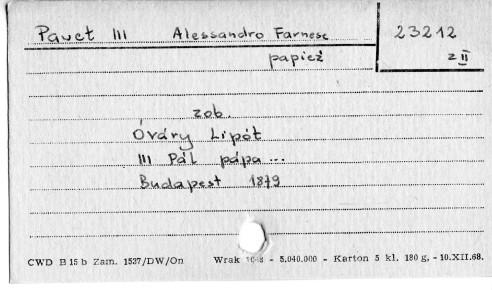 Paweł III Alessandro Farnese 23212
papież z II
zob.
Óváry Lipót
III Pál pápa...
Budapest 1879
CWD B 15 b Zam. 1527/DW/On Wrak - 5.040.000 - Karton 5 kl. 180 g. - 10.XII.68.